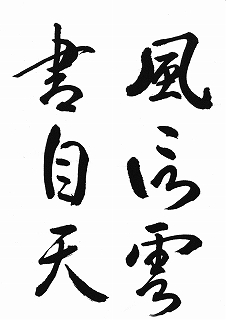 風信雲
書自天